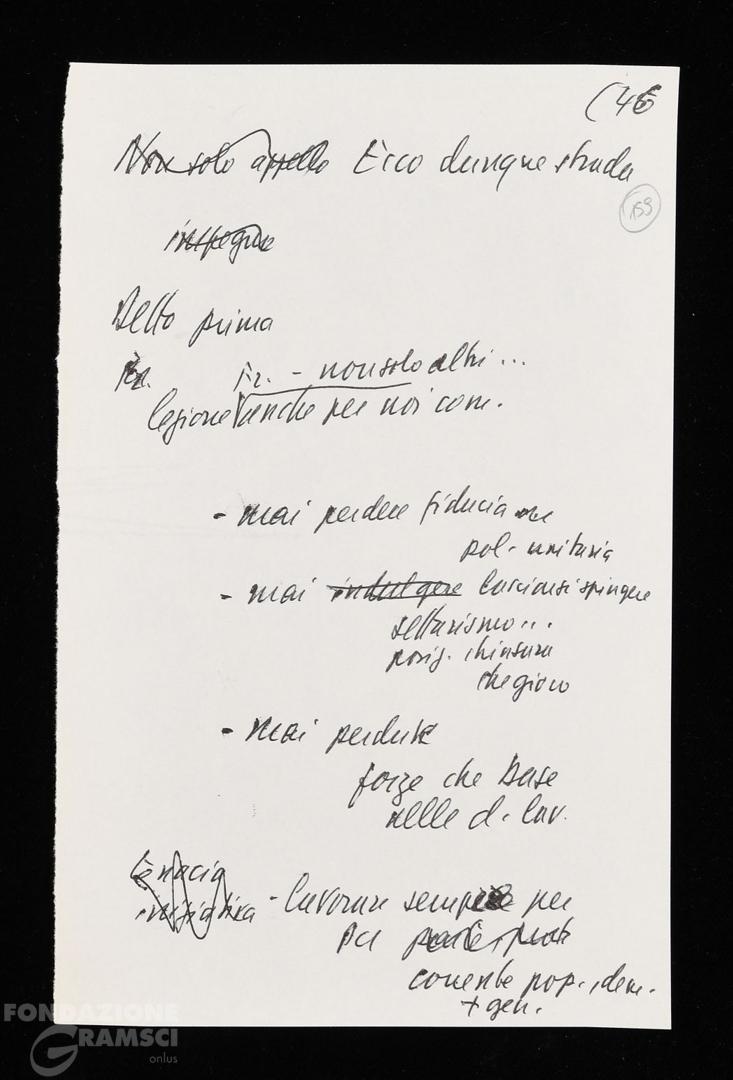 (46
Non solo appello Ecco dunque strada
159
Detto prima
Fr. Fr. - non solo altri...
lezione anche per noi com.
- mai perdere fiducia
pol. unitaria
- mai indulgere lasciarsi spingere
settarismo...
posiz. chiusura
che gioco
- mai perdute
forze che base
nelle cl. lav.
Tenacia
iniziativa - lavorare sempre per
PCI
corrente pop. dem.
+ gen.
FONDAZIONE
GRAMSCI
onlus